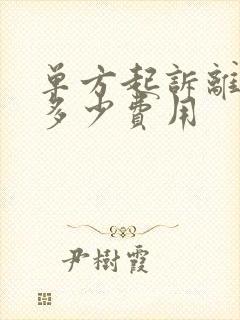 单方起訴離
多少費用
尹樹霞